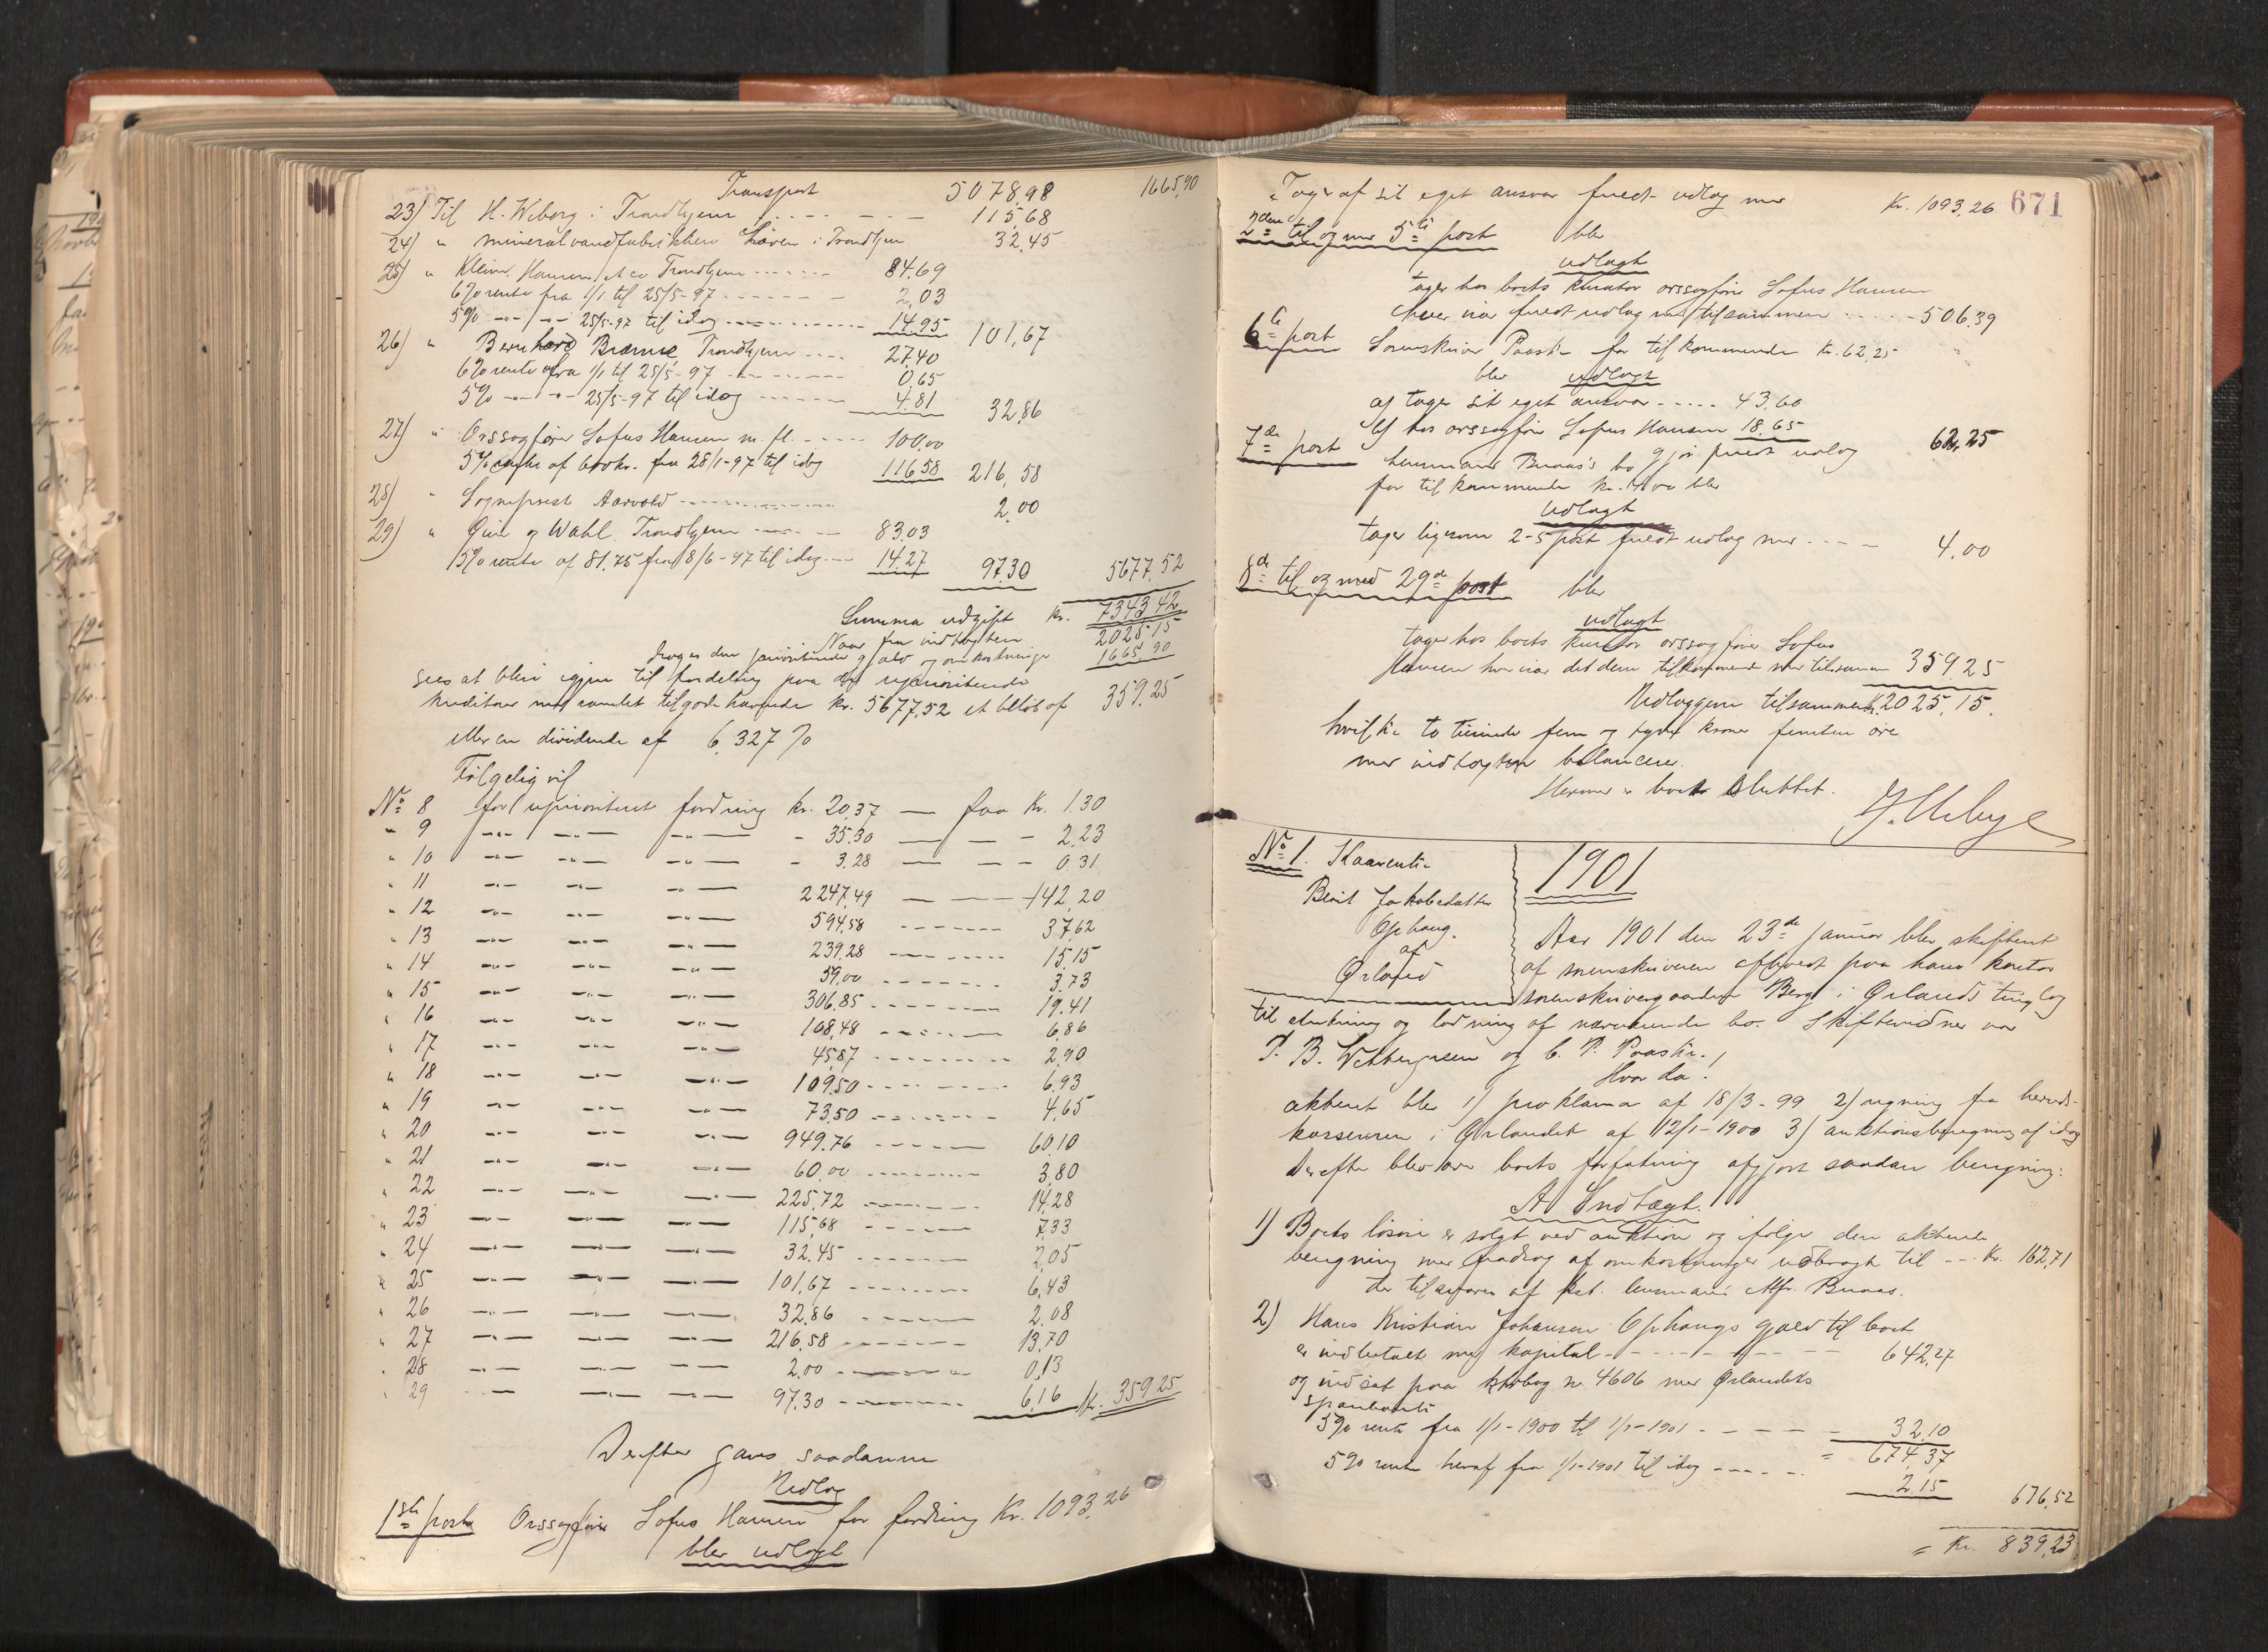 Transport 5078,98 1665,90
23) Til H. Wiborg i Trondhjem 115,68
24) " mineralvandfabrikken Løven i Trondhjem 32,45
25) " Klein, Hansen & Co Trondhjem 84.69
6% rente fra 1/1 til 25/5-97 2,03
5% -"- -"- 25/5-97 til idag 14.95 101,67
26) " Bernhard Brænne, Trondhjem 27.40
6% rente fra 1/1 til 25/5-97 0,65
5% -"- -"- 25/5-97 til idag 4.81 32,86
27) " Ovssagfører Sofus Hansen m. fl. 100,00
5% rente af 600 kr. fra 28/1-97 til idag 116.58 216,58
28) " Sogneprest Aarvold 2,00
29) " Qvie og Wahl, Trondhjem 83.03
5% rente af 81.75 fra 8/6-97 til idag 14.27 97,30 5677,52
Summa udgift kr. 7343,42
Naar fra indtægten 2025 15
drages den prioriterede gjæld og omkostninger 1665,90
sees at blive igjen til fordeling paa de uprioriterede
kreditorer med samlet tilgodehavende kr. 5677,52 et beløb af 359,25
eller en dividende af 6,327 %
Følgelig vil
No 8 for uprioriteret fordring kr. 20,37 — faa Kr. 1.30
" 9 -"- -"- -"- - 35.30 — — - 2,23
" 10 -"- -"- -"- - 3.28 — — - 0,31
" 11 -"- -"- -"- 2247,49 — — 142,20
" 12 -"- -"- -"- 594,58 37,62
" 13 -"- -"- -"- 239,28 15,15
" 14 -"- -"- -"- 59,00 3,73
" 15 -"- -"- -"- 306,85 19.41
" 16 -"- -"- -"- 108,48 6,86
" 17 -"- -"- -"- 45,87 2,90
" 18 -"- -"- -"- 109,50 6.93
" 19 -"- -"- -"- 73,50 4,65
" 20 -"- -"- -"- 949.76 60,10
" 21 -"- -"- -"- 60,00 3,80
" 22 -"- -"- -"- 225,72 14,28
" 23 -"- -"- -"- 115,68 7,33
" 24 -"- -"- -"- 32.45 2,05
" 25 -"- -"- -"- 101,67 6,43
" 26 -"- -"- -"- 32,86 2.08
" 27 -"- -"- -"- 216,58 13,70
" 28 -"- -"- -"- 2.00 0,13
" 29 -"- -"- -"- 97.30 6,16 kr. 359,25
Derefter gaves saadanne
Udlæg
1ste post Ovssagfører Sofus Hansen for fordring Kr. 1093,26
blev udlagt
671
Tager af sit eget ansvar fuldt udlæg med Kr. 1093,26
2den til og med 5te post blev
udlagt
tages hos boets kurator ovssagfører Sofus Hansen
hver især fuldt udlæg med tilsammen 506,39
6te post Sorenskriver Paaske for tilkommende Kr. 62,25
blev udlagt
af tages sit eget ansvar 43,60
Af hos ovssagfører Sofus Hansen 18,65 62,25
7de post lensmand Buaas's bo gjør fuldt udlæg
for tilkommende kr. 4,00 blev
udlagt
tages ligesom 2-5 post fuldt udlæg med 4,00
8de til og med 29de post blev
udlagt
tages hos boets kurator ovssagfører Sofus
Hansen hver især det dem tilkommende med tilsammen 359,25
Udlæggene tilsammen kr. 2025,15.
hvilke to tusinde fem og tyve kroner femten øre
med indtægten balancerer.
Hermed er boet sluttet.
No 1. Kaarenke
Berit Jakobsdatter
Ophaug.
af
Ørlandet
1901
Aar 1901 den 23de januar blev skifteret
af sorenskriveren afholdt paa hans kontor
sorenskrivergaarden Berg i Ørlands tinglag
til slutning og lodning af nærværende bo. Skiftevidner var
P. B. Wettergreen og C. P. Paaske.
Hvor da!
aktent blev 1) proklama af 18/3-99 2) regning fra herreds-
kassereren i Ørlandet af 12/1-1900 3) auktionsberegning af idag
Derefter blev over boets forfatning afgjort saadan beregning:
A. Indtægt.
1) Boets løsøre er solgt ved auktion og ifølge den akterede
beregning med fradrag af omkostninger udbragt til Kr. 162,71
der tilsvares af kst. lensmand Buaas.
2) Hans Kristian Johansen Ophaugs gjæld til boet
er indbetalt med kapital 642,27
og indsat paa ktrabog nr 4606 med Ørlandets
sparebank
5% rente fra 1/1-1900 til 1/1-1901 32,10
= 674,37
5% rente heraf fra 1/1-1901 til idag 2,15 676,52
= Kr. 839,23